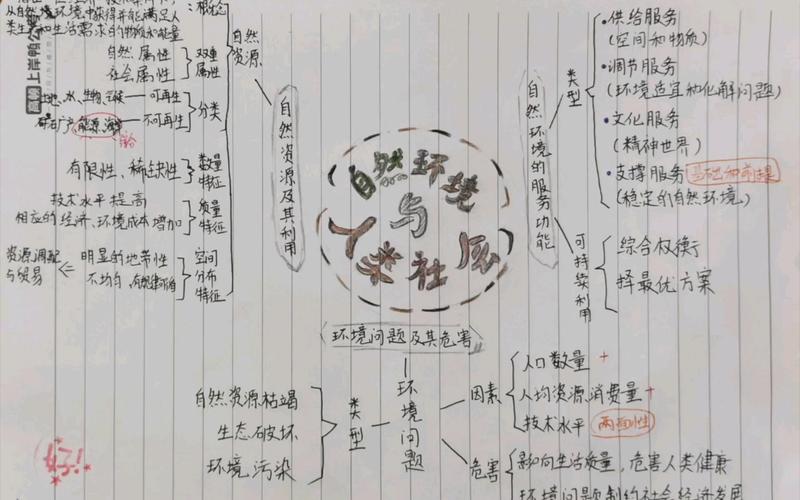 从自然环境中获得并能满足人
类生产和生活需求的物质和能量
：概论
自然属性
社会属性
双重
属性
土地、水、生物、气候——可再生
矿石广产、能源、海洋——不可再生
分类
有限性、稀缺性
数量
特征
技术水平提高
相应的经济、环境成本增加
质量
特征
资源调配
与贸易
明显的地带性
不均匀、有规律
空间
分布
特征
自然
资源
自然资源及其利用
自然环境
与
人类社会
自然环境的服务功能
类型
•供给服务
(空间和物质)
•调节服务
(环境适宜和化解问题)
•文化服务
(精神世界)
•支撑服务 基础和前提
(稳定的自然环境)
可持续利用
综合权衡
择最优方案
环境问题及其危害
环境问题
类型
自然资源枯竭
生态破坏
环境污染
因素
人口数量 +
人均资源消费量 +
技术水平 两面性
危害
影响生活质量，危害人类健康
环境问题制约社会经济发展
好!